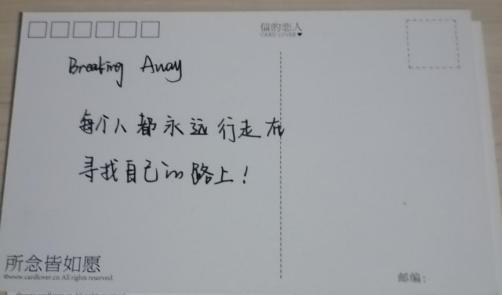 信的恋人
CARD LOVER♥
Breaking Away
每个人都永远行走在
寻找自己的路上!
所念皆如愿
©www.cardlover.cn All rights reserved.
邮编: